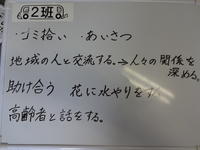 2班
・ゴミ拾い ・あいさつ
地域の人と交流する。→人々の関係を
深める。
助け合う 花に水やりをする
高齢者と話をする。